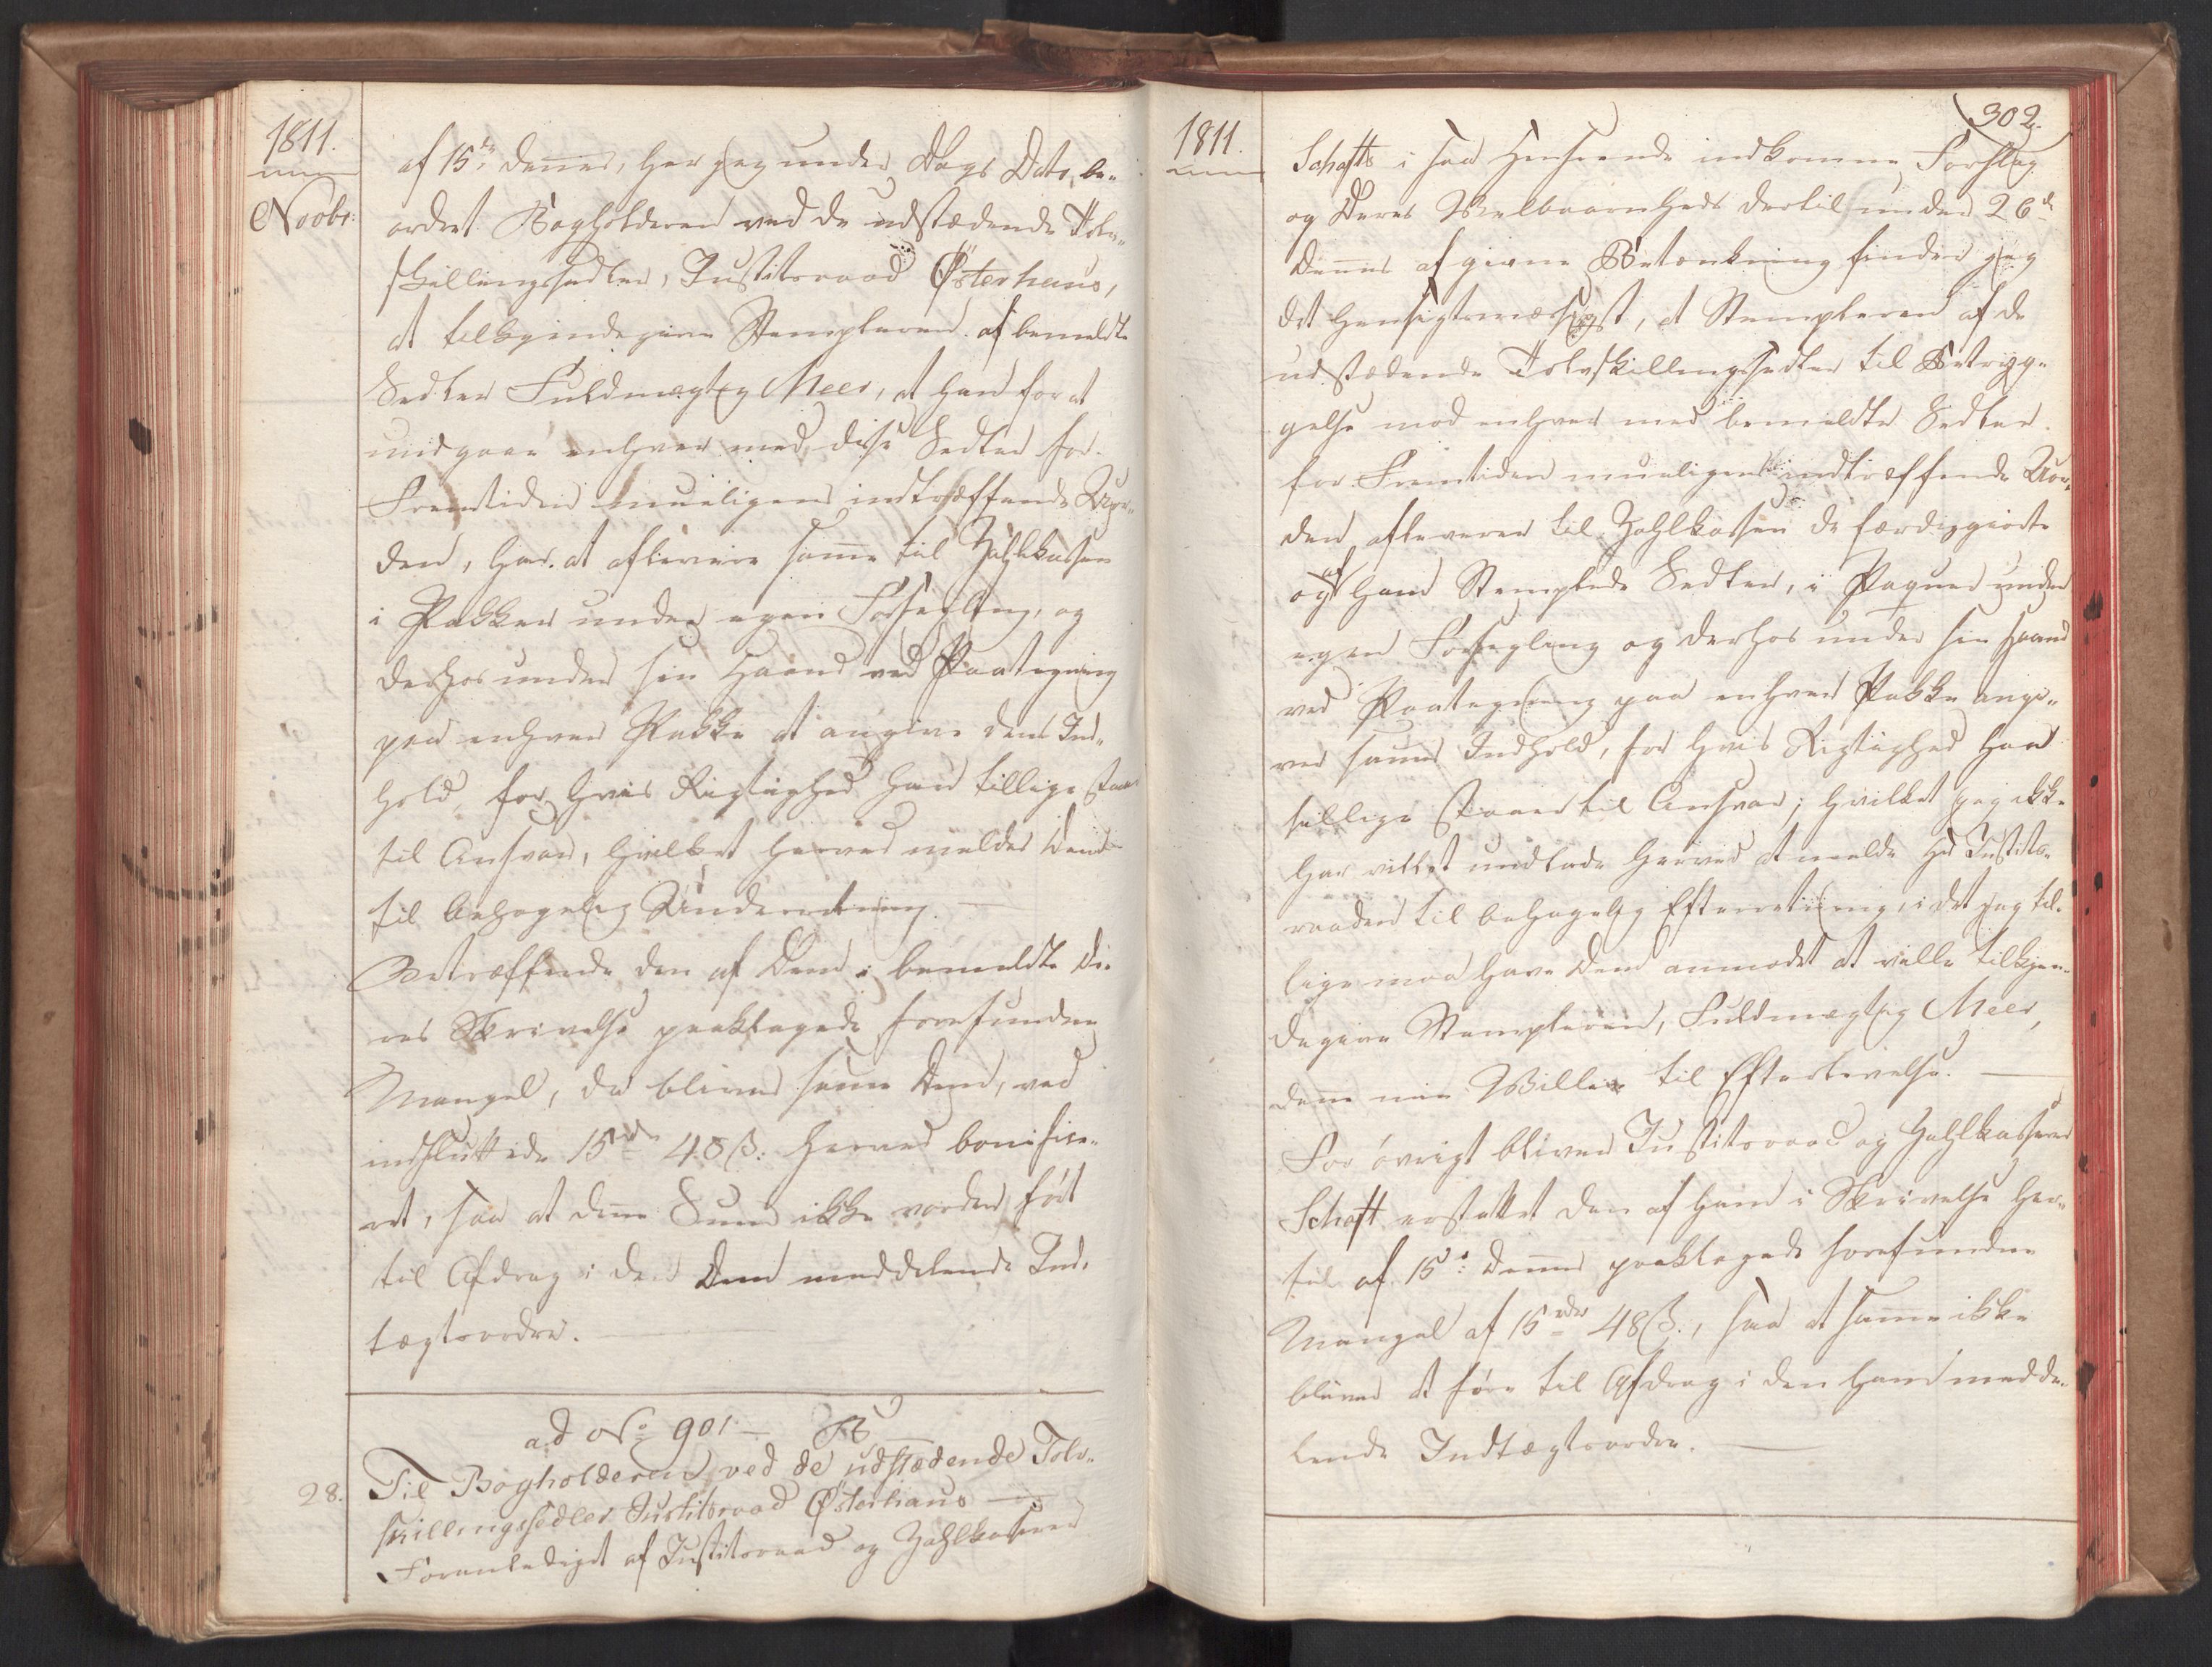 1811.
Novbr:
af 15de dennes, har jeg under Dags Dato, be-
ordret Bogholderen ved de udstædende Tolv-
skillingssedler, Justitsraad Østerhaus,
at tilkjendegive Stempleren af bemeldte
Sedler Fuldmægtig Meer, at han for at
undgaae enhver med disse Sedler for
Fremtiden mueligens indtræffende Uor-
den, har at aflevere samme til Zahlkassen
i Pakker under egen Forsegling, og
derhos under sin Haand ved Paategning
paa enhver Pakke at angive dens Ind-
hold, for hvis Rigtighed han tillige staaer
til Ansvar, hvilket herved meldes Dem
til behagelig Underretning.
Betræffende den af Dem i bemeldte De-
res Skrivelse paaklagede forefundne
Mangel, da bliver samme Dem, ved
indsluttede 15 rd 48 ß. herved bonifice-
ret, saa at denne Sum ikke vorder ført
til Afdrag i den Dem meddelende Ind-
tægtsordre.
ad No 901
28.
Til Bogholderen ved de udstædende Tolv-
skillingssedler Justitsraad Østerhaus
Foranlediget af Justitsraad og Zahlkasserer
1811.
302.
Schafts i saa Henseende indkomne Forslag
og Deres Velbaarenheds dertil under 26de
dennes afgivne Betænkning finder jeg
det hensigtsmæssigst, at Stempleren af de
udstædende Tolvskillingssedler til Betryg-
gelse mod enhver med bemeldte Sedler
for Fremtiden mueligens indtræffende Uor-
den, afleverer til Zahlkassen de færdiggjorte
og af ham Stemplede Sedler, i Paquer under
egen Forsegling og derhos under sin Haand
ved Paategning paa enhver Pakke angi-
ver sammes Indhold, for hvis Rigtighed han
tillige staaer til Ansvar; hvilket jeg ikke
har villet undlade herved at melde Hr Justits-
raaden til behagelig Efterretning, i det jeg til-
lige maa have Dem anmodet at ville tilkjen-
degive Stempleren, Fuldmægtig Meer,
denne min Villie til Efterlevelse.
For øvrigt bliver Justitsraad og Zahlkasserer
Schaft erstattet den af ham i Skrivelse her-
til af 15de dennes paaklagede forefundne
Mangel af 15 rdr 48 ß., saa at samme ikke
bliver at føre til Afdrag i den ham medde-
lende Indtægtsordre.